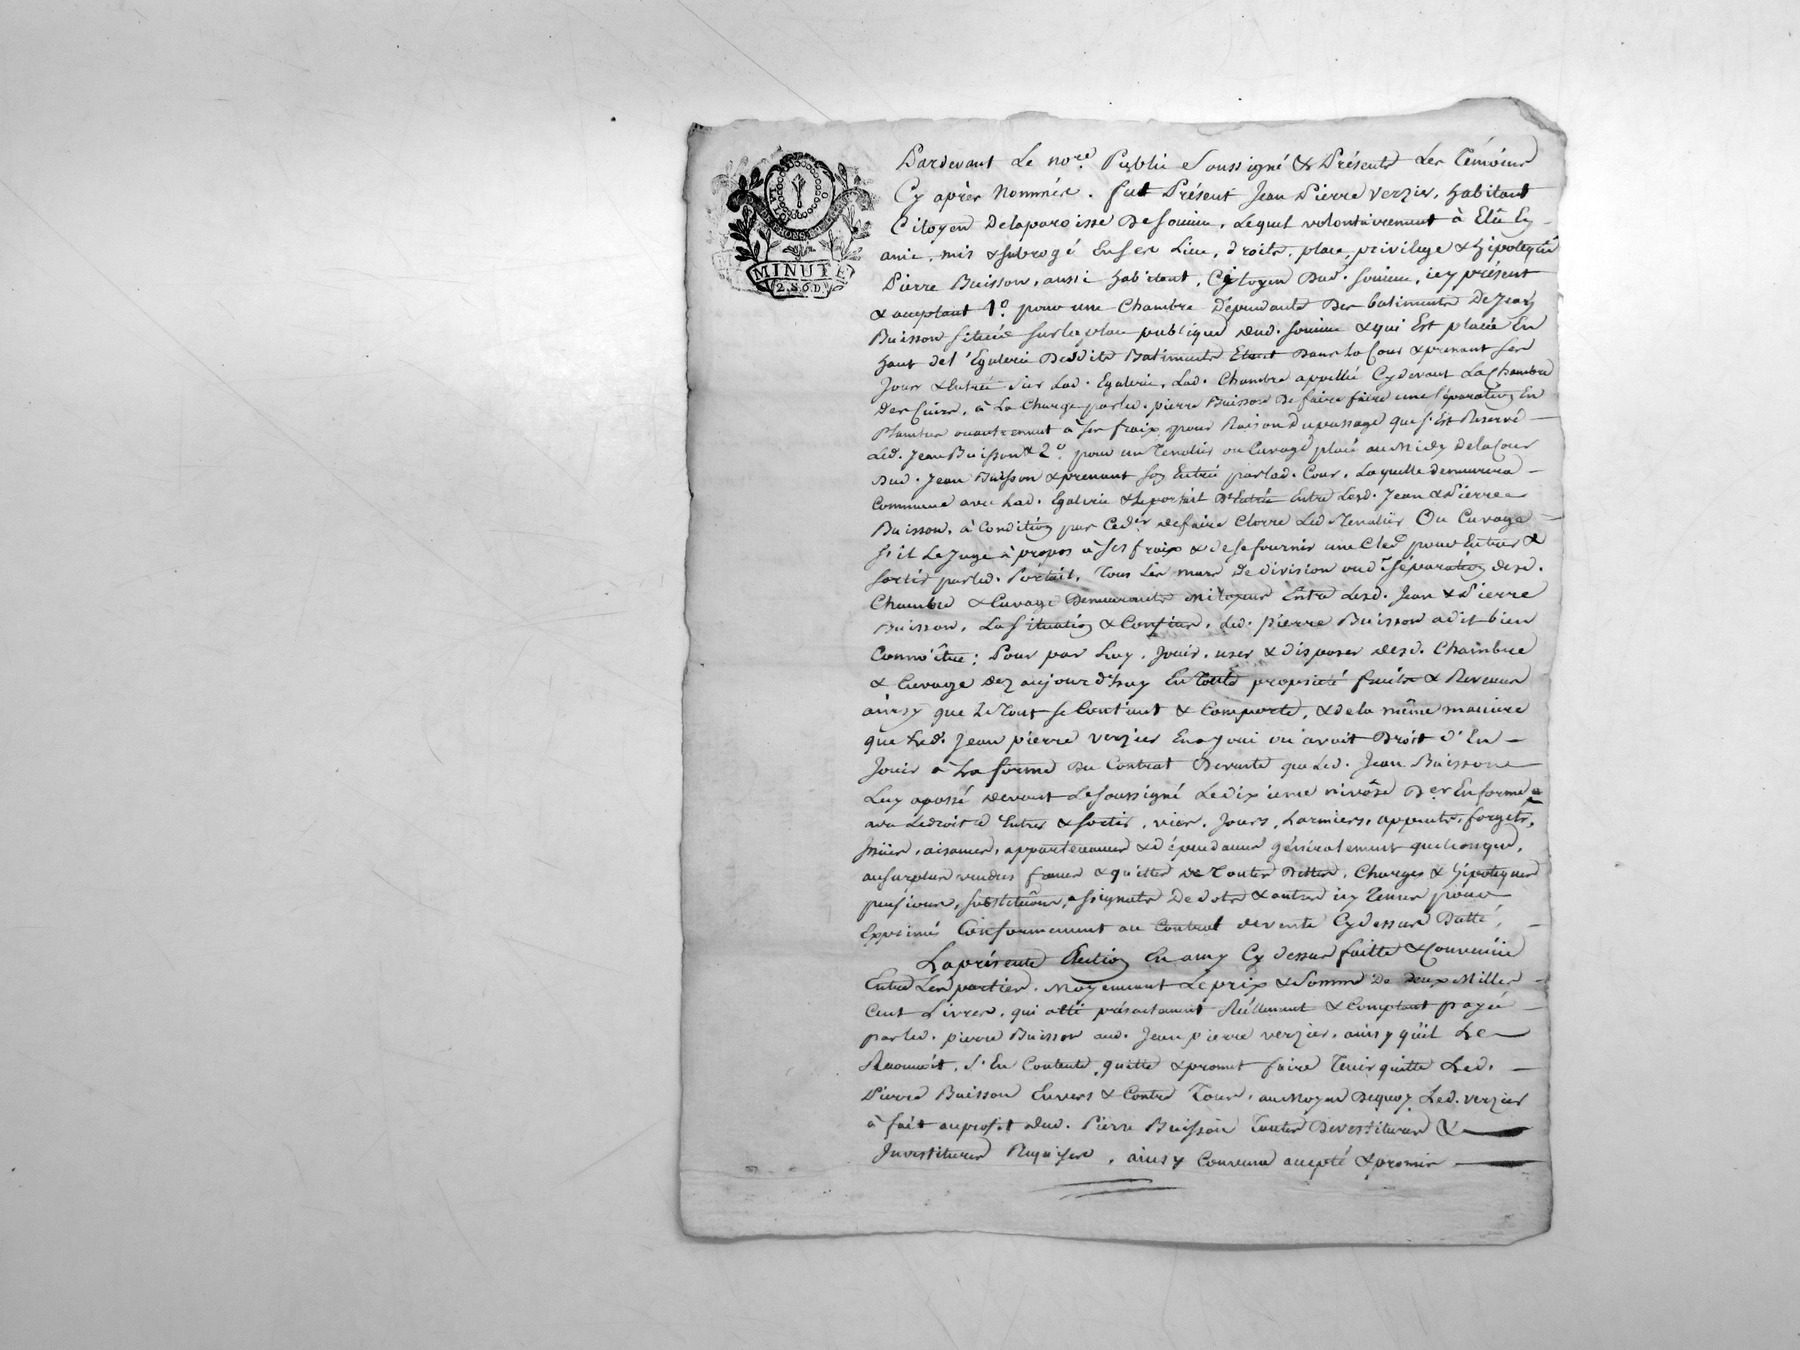 MINUTE
2. S 6 D.
Pardevant Le no.re Public Soussigné & Présents Les Témoins
Cy après Nommés. fut Présent Jean Pierre verzier, habitant
Citoyen Delaparoisse De Soucieu, Lequel volontairement à Elû En
amie, mis & subrogé En ses Lieu, droits, place, privilege & hipoteque
Pierre Buisson, aussi habitant, Citoyen Dud. Soucieu, icy présent
& acceptant 1.o pour une Chambre Dépendante Des batiments De Jean
Buisson située sur la place publique dud. Soucieu & qui Est placée En
haut de l'Egalerie Desdits Batiments Etant Dans La Cour & prenant ses
Jours & Entrée sur Lad. Egalerie, Lad. Chambre appellée Cydevant La Chambre
des Cuirs, à La Charge par led. pierre Buisson De faire faire une séparation En
Planches ou autrement à ses fraix pour Raison Du passage que s'Est Réservé
Led. Jean Buisson & 2.o pour un Tenalier ou Cuvage placé au Midy De la Cour
Dud. Jean Buisson & prenant son Entrée par lad. Cour, Laquelle demeurera
Commune avec Lad. Egalerie & Le portail D'Entrée Entre Lesd. Jean & Pierre
Buisson, à Condition par Ce der de faire Clorre Led. Tenalier Ou Cuvage
s'il Le Juge à propos à ses fraix & de se fournir une Cled pour Entrer &
sortir par led. Portail, Tous Les murs De division ou de séparation desd.
Chambre & Cuvage Demeurants Mitoyens Entre Lesd. Jean & Pierre
Buisson, La situation & Confins, Led. pierre Buisson a dit bien
Connoître; Pour par Luy, Jouir, user & disposer desd. Chambre
& Cuvage Dez aujourd'huy En Toute propriété fruits & Revenus
ainsy que Le Tout se Contient & Comporte, & de la même maniere
que Led. Jean pierre verzier En a joui ou avoit Droit d'En
Jouir à La forme Du Contrat De vente que Led. Jean Buisson
Luy a passé devant Le soussigné Le dixieme nivôse Der En forme
avec Le droit d'Entrer & sortir, vües, Jours, Larmiers, appents, forgets,
aisances, appartenances & dépendances généralement quelconques,
au surplus vendus francs & quittes de Toutes Dettes, Charges & hipoteques
pensions, substitutions, assignats De dots & autres icy Tenus pour
Exprimés Conformement au Contrat de vente Cydessus Datté,
La présente Election En amy Cy dessus faitte & Convenüe
Entre Les parties, Moyennant Le prix & Somme De deux Milles
Cent Livres, qui a été présentement Réellement & Comptant payée
par led. pierre Buisson aud. Jean pierre verzier, ainsy qu'il Le
Reconnoit, S'En Contente, quitte & promet faire Tenir quitte Led.
Pierre Buisson Envers & Contre Tous, au Moyen Dequoy Led. verzier
à fait au profit dud. Pierre Buisson Toutes Devestitures &
Investitures Requises, ainsy Convenu accepté & promis